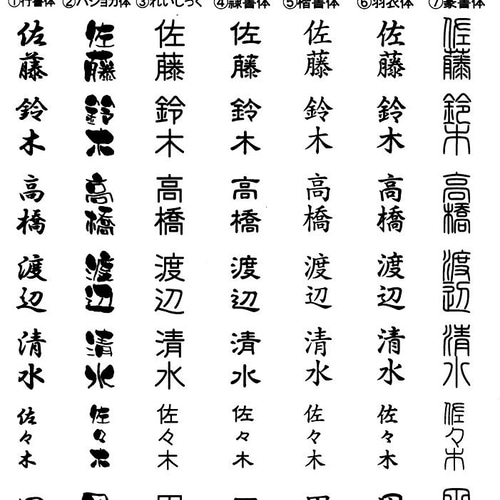 ①行書体 ②バショカ体 ③れいしっく ④隷書体 ⑤楷書体 ⑥羽衣体 ⑦篆書体
佐藤 佐藤 佐藤 佐藤 佐藤 佐藤 佐藤
鈴木 鈴木 鈴木 鈴木 鈴木 鈴木 鈴木
高橋 高橋 高橋 高橋 高橋 高橋 高橋
渡辺 渡辺 渡辺 渡辺 渡辺 渡辺 渡辺
清水 清水 清水 清水 清水 清水 清水
佐々木 佐々木 佐々木 佐々木 佐々木 佐々木 佐々木